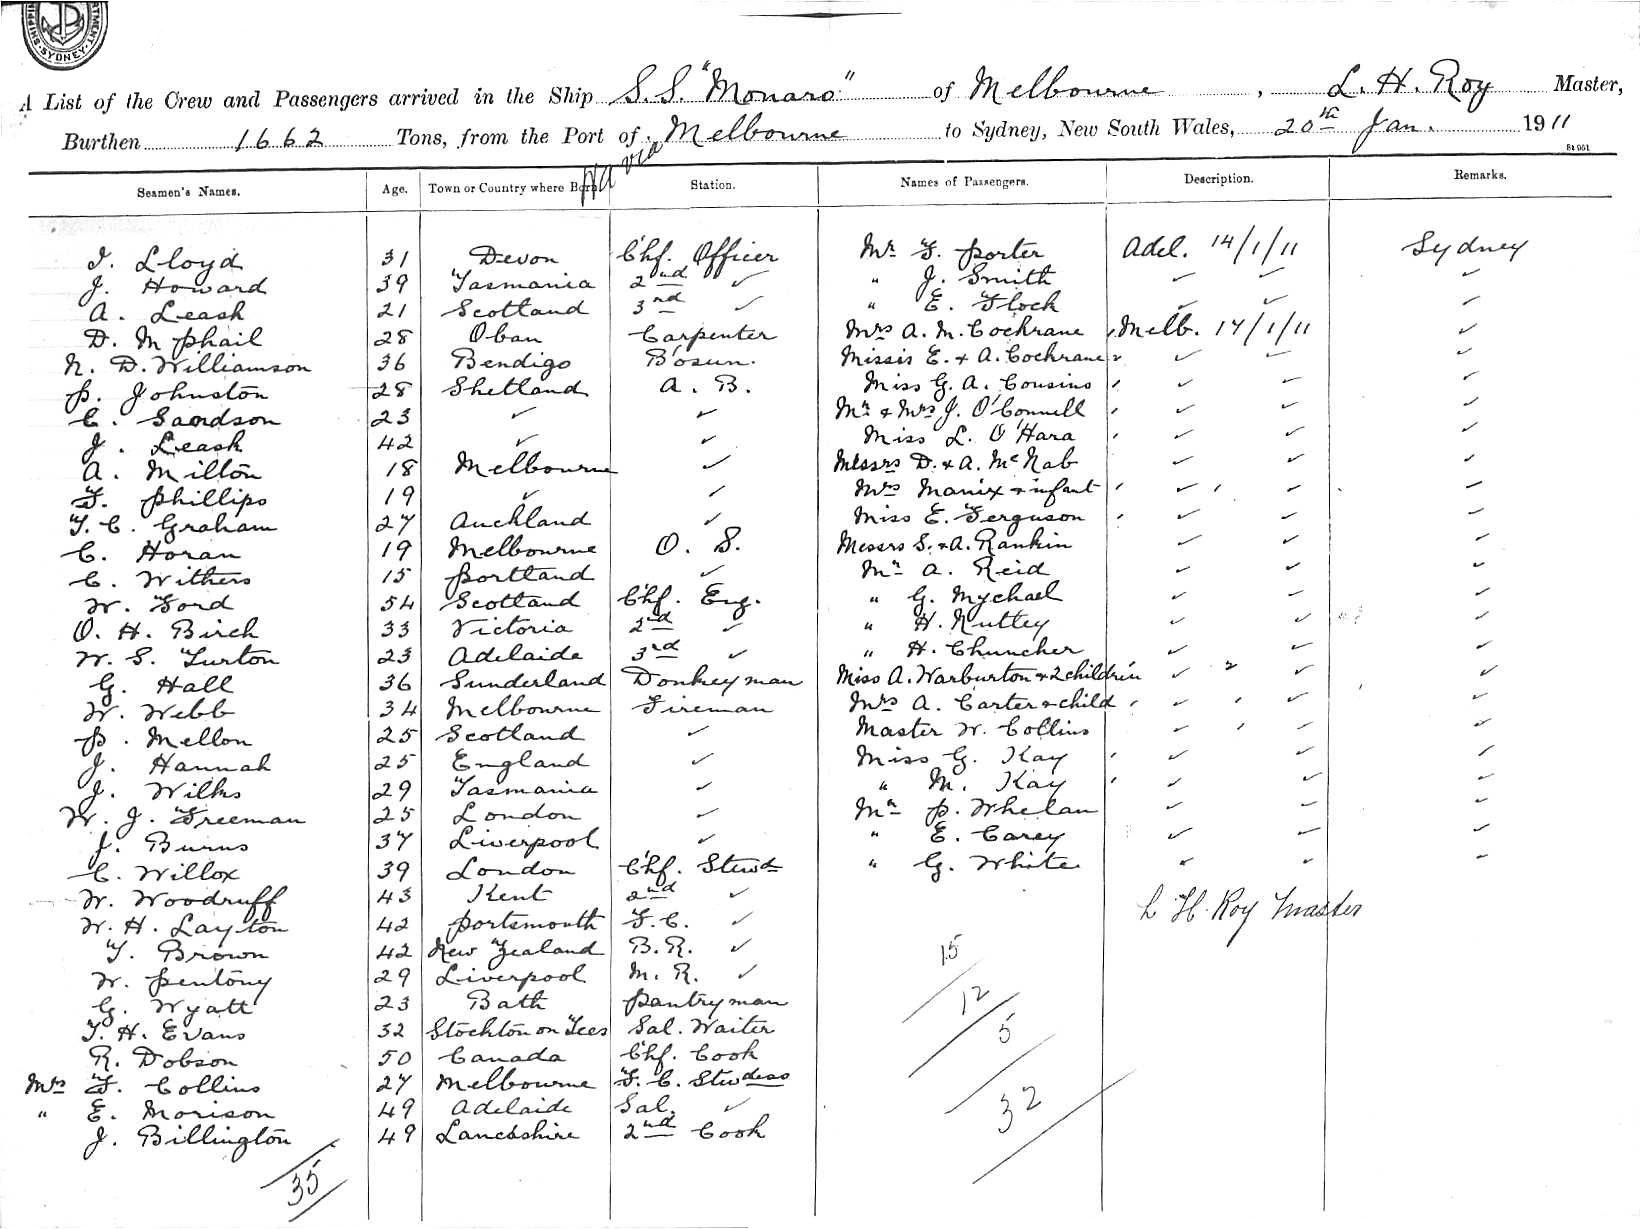 SHIPPING
SYDNEY
A List of the Crew and Passengers arrived in the Ship S.S. "Monaro" of Melbourne, L. H. Roy Master,
Burthen 1662 Tons, from the Port of Melbourne to Sydney, New South Wales, 20th Jan. 1911
via
St 961
Seamen's Names. Age. Town or Country where Born Station. Names of Passengers. Description. Remarks.
Lloyd 31 Devon Chf. Officer Mr F. Porter Adel. 14/1/11 Sydney
J. Howard 39 Tasmania 2nd ✓ " J. Smith ✓ ✓ ✓
A. Leask 21 Scotland 3rd ✓ " E. Flock ✓ ✓ ✓
D. McPhail 28 Oban Carpenter Mrs A. M. Cochrane Melb. 17/1/11 ✓
N. D. Williamson 36 Bendigo Bosun. E. & A. Cochrane ✓ ✓ ✓
P. Johnston 28 Shetland A. B. Miss G. A. Cousins ✓ ✓ ✓
C. Sandson 23 ✓ ✓ Mr & Mrs J. O'Connell ✓ ✓ ✓
J. Leask 42 ✓ ✓ Miss L. O'Hara ✓ ✓ ✓
A. Milton 18 Melbourne ✓ Messrs D. & A. McNab ✓ ✓ ✓
F. Phillips 19 ✓ ✓ Mrs Manix & infant ✓ ✓ ✓
T. C. Graham 27 Auckland ✓ Miss E. Ferguson ✓ ✓ ✓
C. Horan 19 Melbourne O. S. Messrs S. & A. Rankin ✓ ✓ ✓
C. Withers 15 Portland ✓ Mr A. Reid ✓ ✓ ✓
W. Ford 54 Scotland Chf. Eng. " G. Mychael ✓ ✓ ✓
O. H. Birch 33 Victoria 2nd ✓ " H. Nuttey ✓ ✓ ✓
W. S. Turton 23 Adelaide 3rd ✓ " H. Chuncher ✓ ✓ ✓
G. Hall 36 Sunderland Donkeyman Miss A. Warburton & 2 children ✓ 2 ✓ ✓
W. Webb 34 Melbourne Fireman Mrs A. Carter & child ✓ ✓ ✓
P. Mellon 25 Scotland ✓ Master W. Collins ✓ ✓ ✓
J. Hannah 25 England ✓ Miss G. Kay ✓ ✓ ✓
J. Wilks 29 Tasmania ✓ " M. Kay ✓ ✓ ✓
W. J. Freeman 25 London ✓ Mr P. Whelan ✓ ✓ ✓
J. Burns 37 Liverpool ✓ " E. Carey ✓ ✓ ✓
C. Willox 39 London Chf. Stewd " G. White ✓ ✓ ✓
W. Woodruff 43 Kent 2nd ✓
L H. Roy Master
W. H. Layton 42 Portsmouth F. C. ✓
T. Brown 42 New Zealand B. R. ✓ 15
W. Pentony 29 Liverpool M. R. ✓
G. Wyatt 23 Bath Pantryman 12
T. H. Evans 32 Stockton on Tees Sal. Waiter 5
R. Dobson 50 Canada Chf. Cook
Mrs F. Collins 27 Melbourne F. C. Stewdess
" E. Morison 49 Adelaide Sal. ✓ 32
J. Billington 49 Lancashire 2nd Cook
35